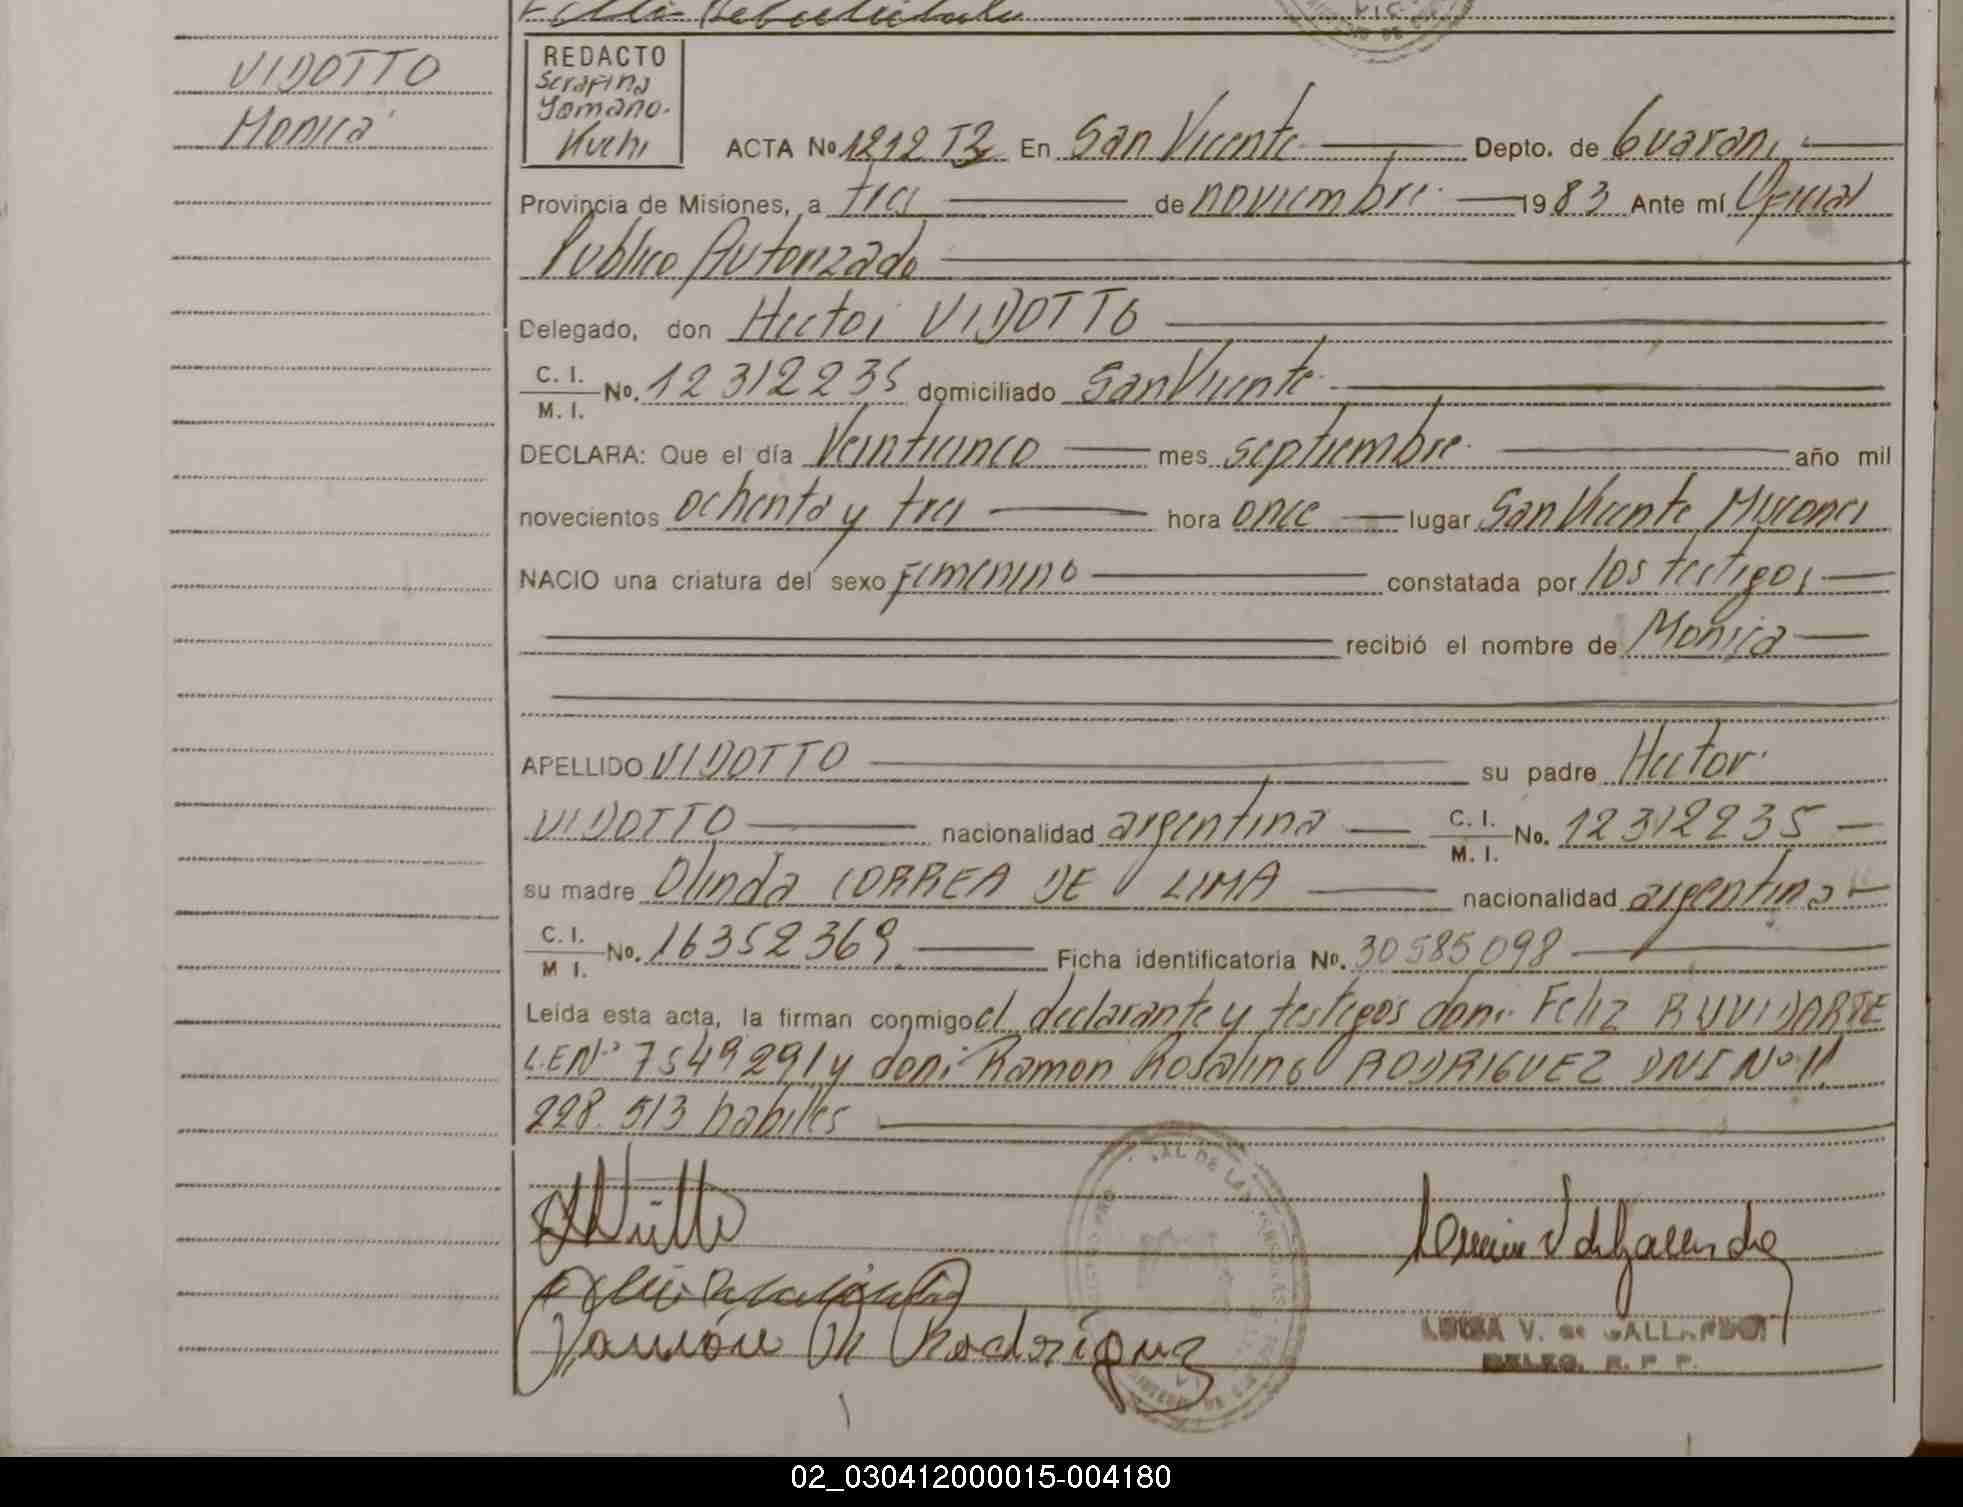 VIDOTTO
Monica
REDACTO
Serafina
Yomano.
Kuchi
ACTA Nº 1212 T3 En San Vicente Depto. de Guarani
Provincia de Misiones, a tres de noviembre 1983 Ante mí Oficial
Publico Autorizado
Delegado, don Hector VIDOTTO
C. I.
M. I. No. 12312235 domiciliado San Vicente
DECLARA: Que el día Veinticinco mes septiembre año mil
novecientos ochenta y tres hora once lugar San Vicente Misiones
NACIO una criatura del sexo femenino constatada por los testigos
recibió el nombre de Monica
APELLIDO VIDOTTO su padre Hector
VIDOTTO nacionalidad argentina C. I. M. I. No. 12312235
su madre Olinda CORREA DE LIMA nacionalidad argentina
C. I. M I. No. 16352369 Ficha identificatoria Nº. 30585098
Leída esta acta, la firman conmigo el declarante y testigos don: Feliz RUVIDARTE
L.E Nº 7549291 y don: Ramon Rosalino RODRIGUEZ DNI Nº 11
228.513 habiles
Ramón R Rodriguez
LUCIA V. de GALLARDO
DELEG. R. P. P.
02_030412000015-004180